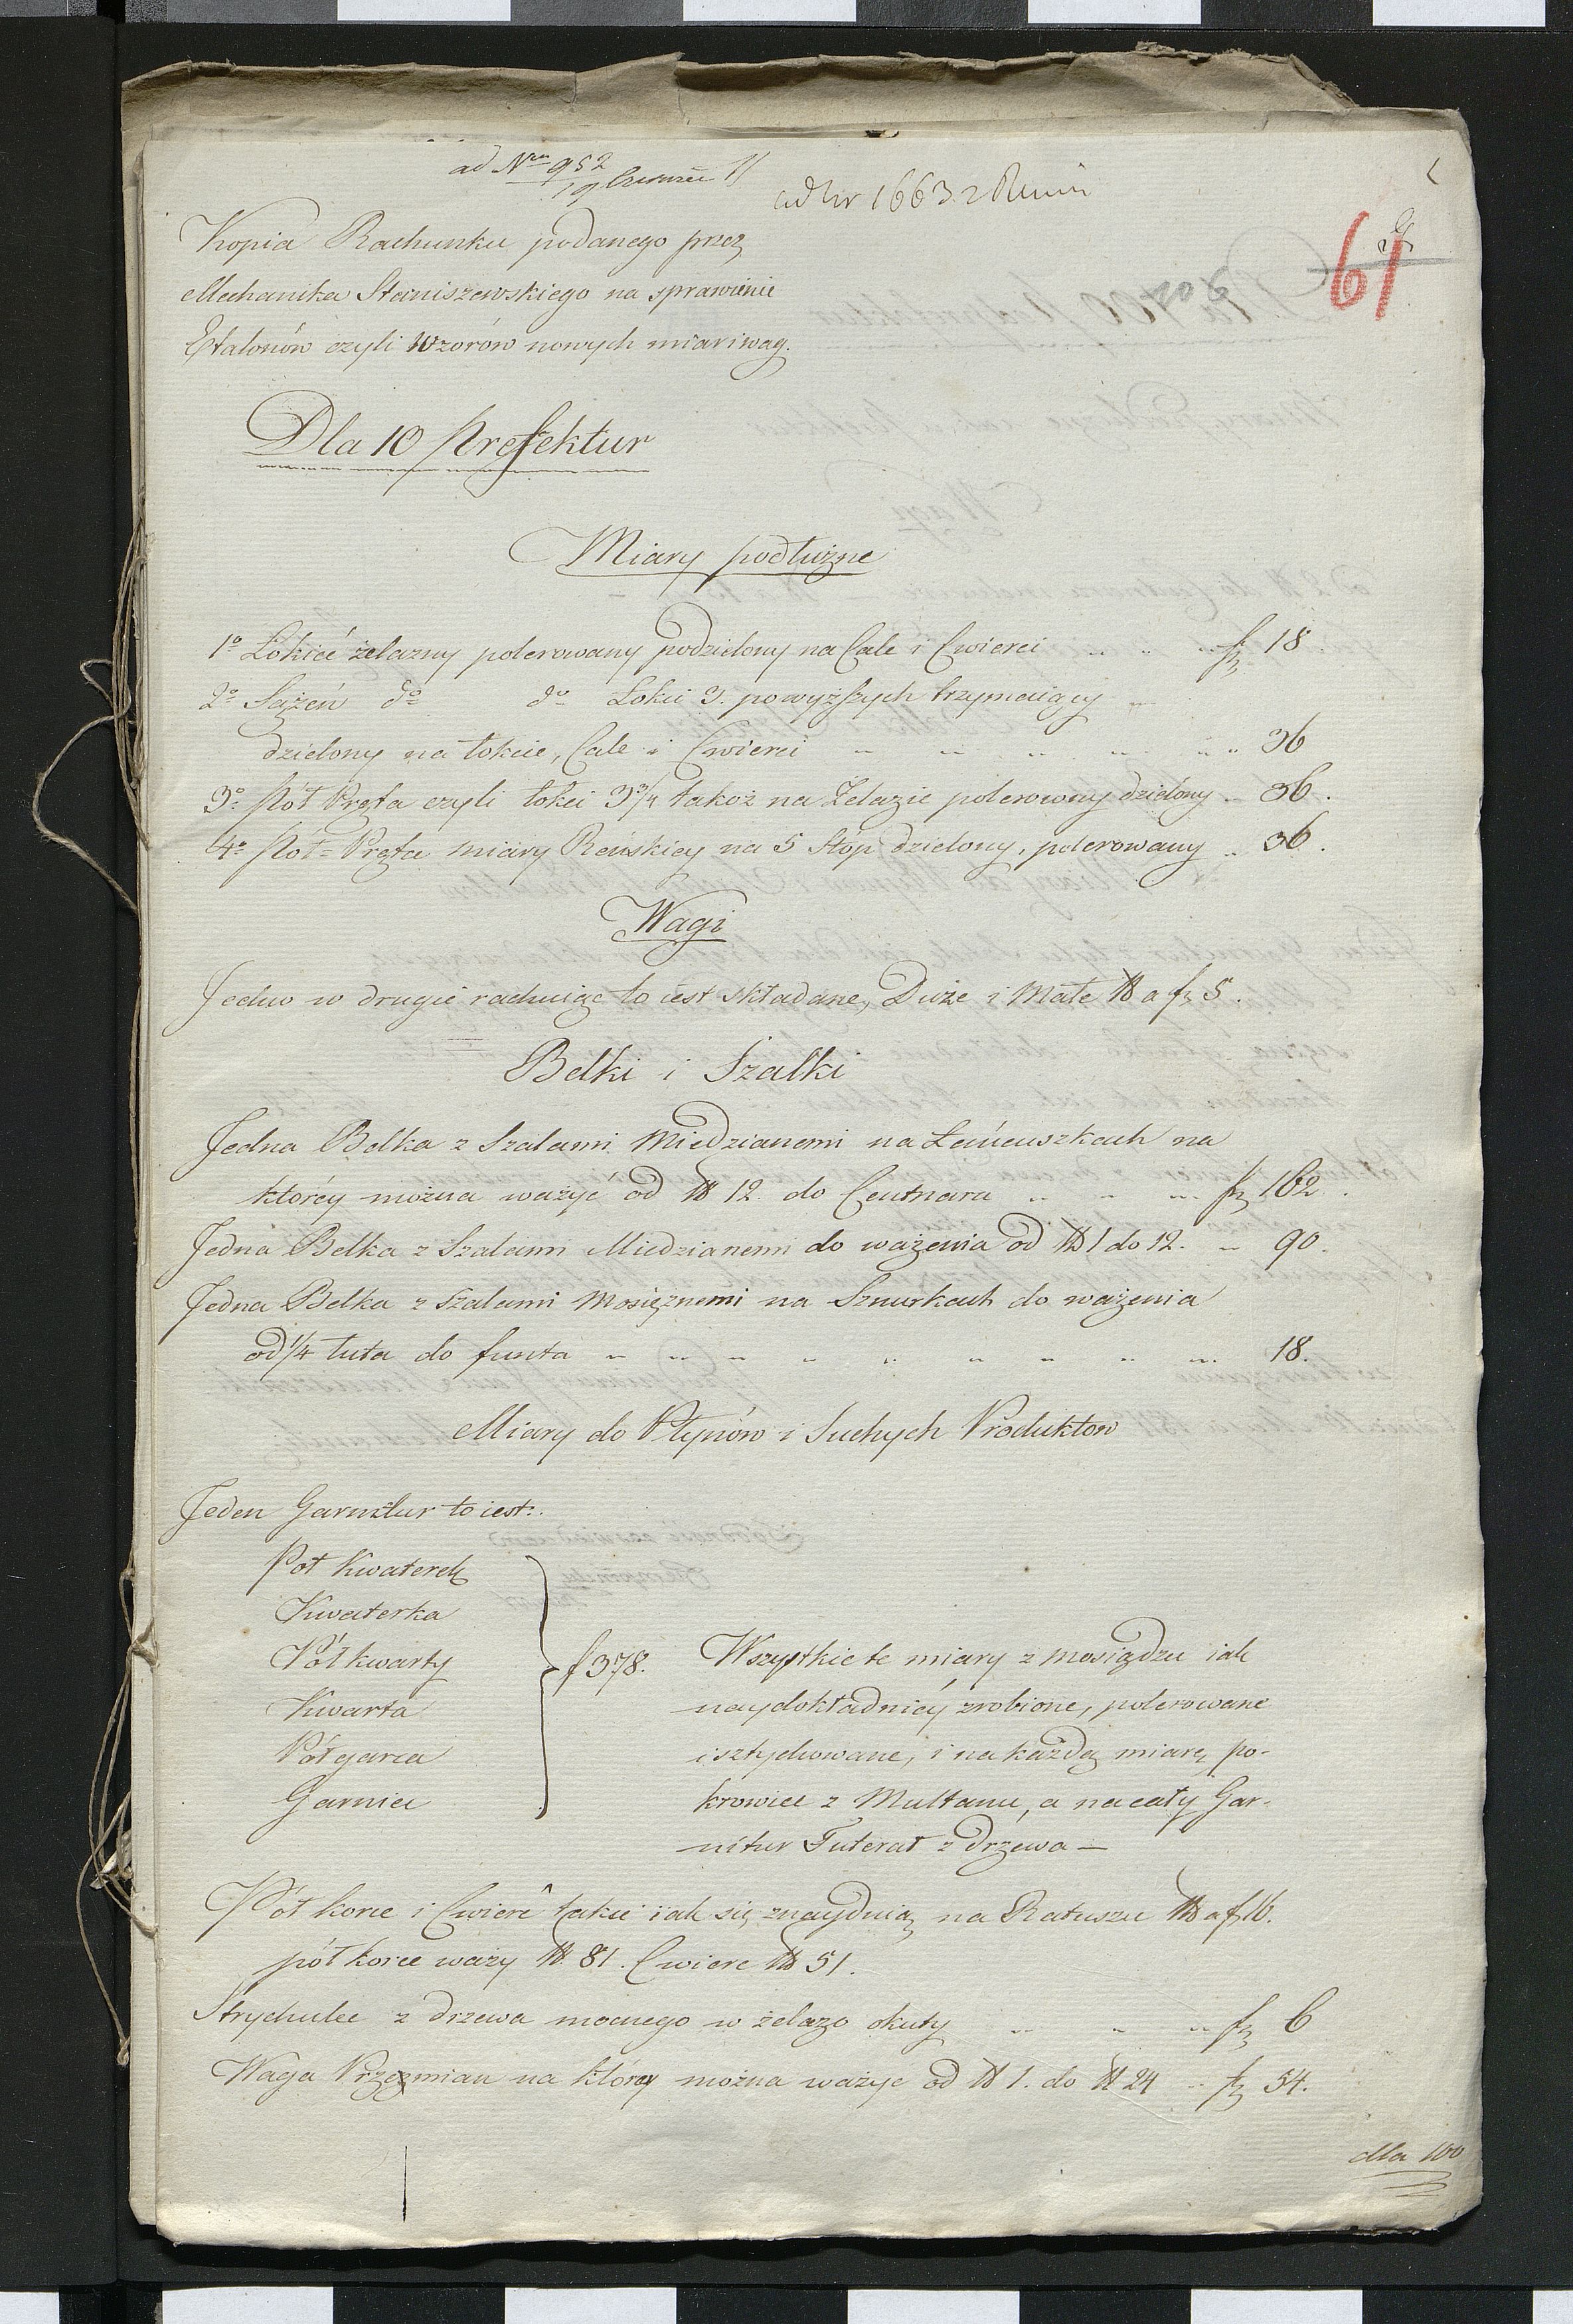 ad Nru 952
19 Czerwca 11
ad Nr 1663
61
Kopia Rachunku podanego przez
Mechanika Staniszewskiego na sprawienie
Etalonów czyli Wzorów nowych miar i wag.
Dla 10 Prefektur
Miary podłużne
1o Łokieć żelazny polerowany podzielony na Cale i Cwierci " " " fz 18.
2o Sążeń do do Łokci 3. powyższych trzymaiący "
dzielony na łokcie, Cale i Cwierci " " " " " " 36
3o Pół Pręta czyli łokci 3 3/4 takoż na Żelazie polerowny dzielony " 36.
4o Pół=Pręta miary Reńskiey na 5 Stóp dzielony, polerowany " 36.
Wagi
Jedno w drugie rachuiąc to iest składane, Duże i Małe ℔ a fz 5.
Belki i Szalki
Jedna Belka z Szalami Miedzianemi na Łańcuszkach na
którey można ważyć od ℔ 12. do Centnara " " " fz 162.
Jedna Belka z Szalami Miedzianemi do ważenia od ℔ 1 do 12. " 90.
Jedna Belka z Szalami Mosiężnemi na Sznurkach do ważenia
od 1/4 łuta do funta " " " " " " " " " 18.
Miary do Płynów i Suchych Produktow
Jeden Garnitur to iest:
Poł Kwaterek
Kwaterka
Pół kwarty
Kwarta
Pół garca
Garniec
f 378.
Wszystkie te miary z mosiądzu iak
naydokładniéy zrobione, polerowane
i sztychowane, i na każdą miarę po-
krowiec z Multanu, a na cały Gar-
nitur Futerał z Drzewa —
Pół korce i Cwierć takie iak się znayduią na Ratuszu ℔ a f 16.
pół korce waży ℔. 81. Cwierc ℔ 51.
Strychulec z drzewa mocnego w żelazo okuty " " " fz 6
Waga Przezmian na którey można ważyc od ℔ 1. do ℔ 24 " fz 54.
dla 100